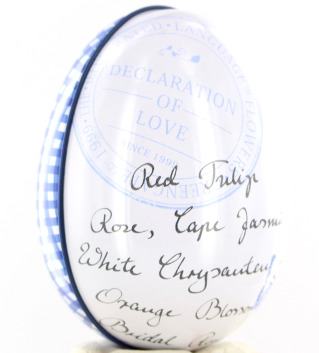 LANGUAGE
FLOWERS
DECLARATION
OF
LOVE
SINCE 1999
Red Tulip
Rose, Cape Jasmi
White Chrysantem
Orange Bloss
Bridal